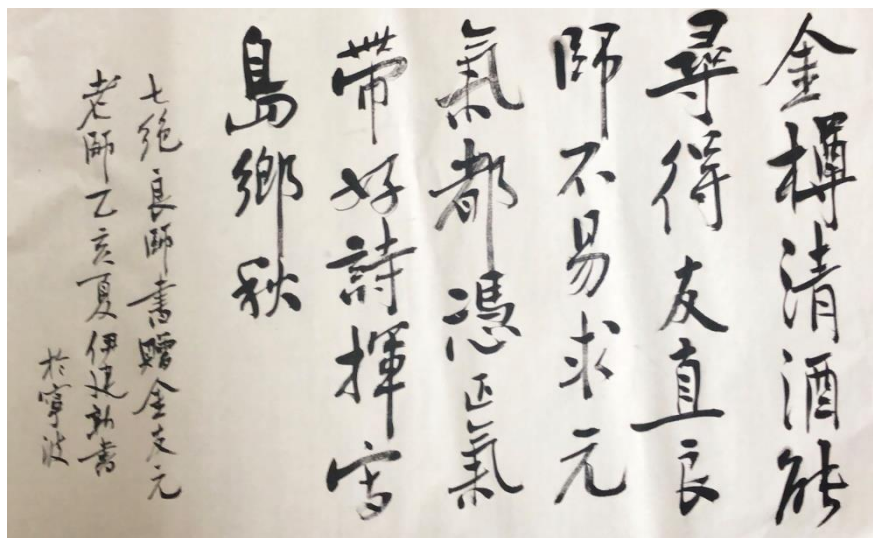 金樽清酒能
尋得友直良
師不易求元
氣都憑正氣
帶好詩揮寫
島鄉秋
七絕良師書贈金友元
老師乙亥夏伊建新書
於寧波